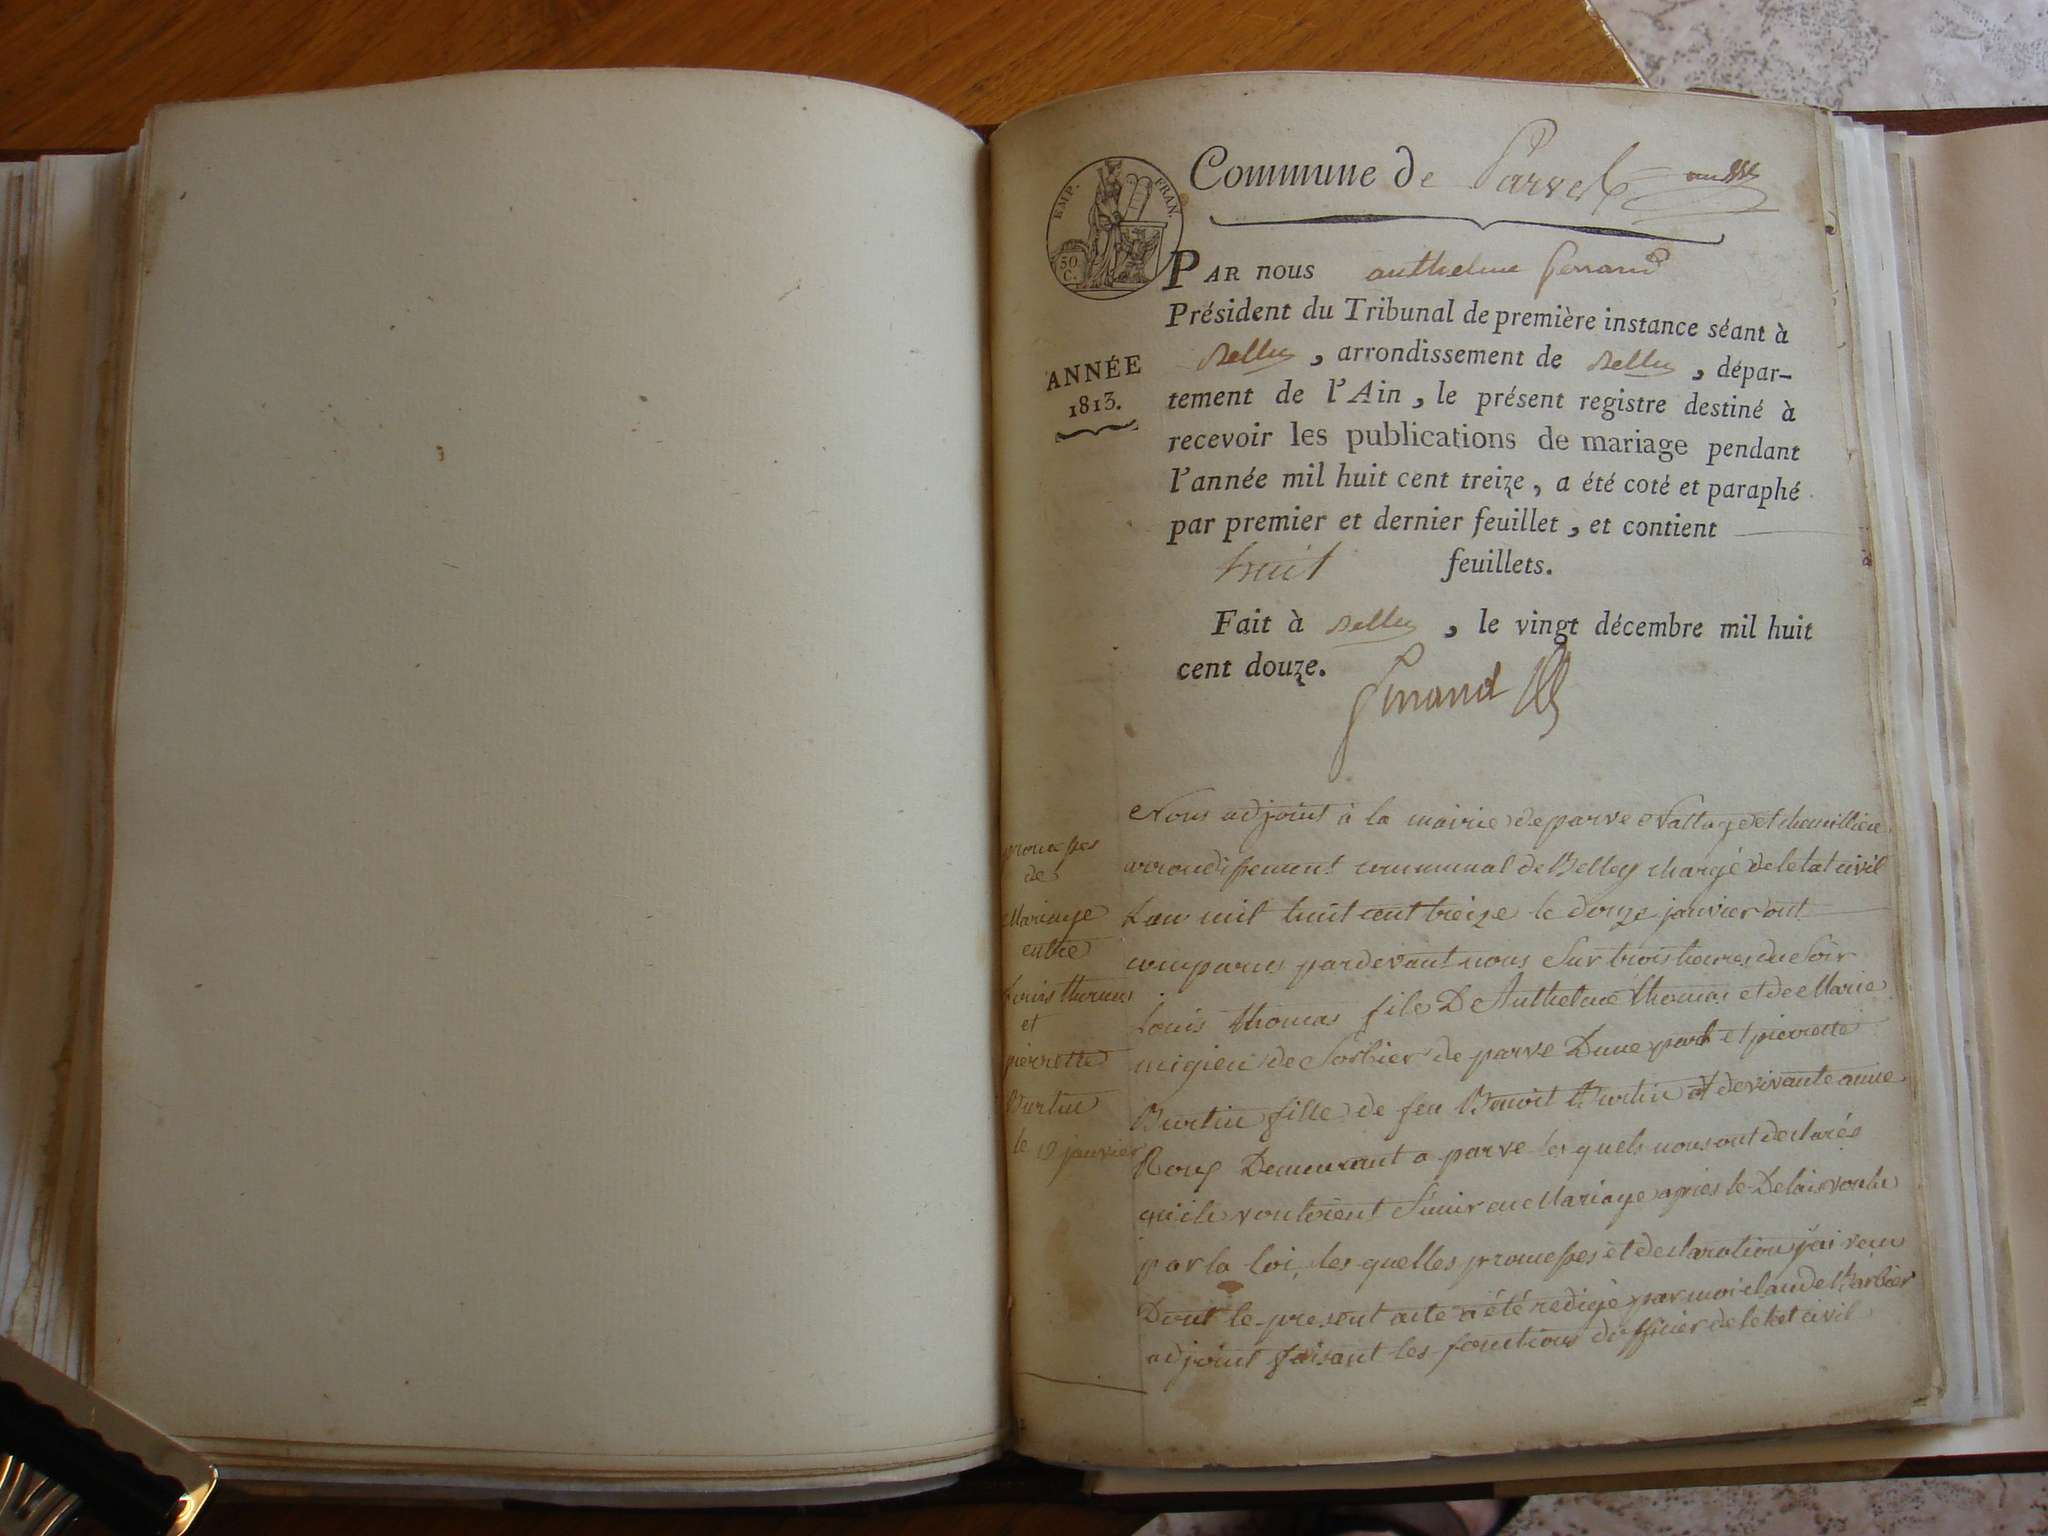 Commune de Parves
EMP. FRAN.
50
C.
PAR nous anthelme
Président du Tribunal de première instance séant à
Belley, arrondissement de Belley, dépar-
ANNÉE
1813.
tement de l'Ain, le présent registre destiné à
recevoir les publications de mariage pendant
l'année mil huit cent treize, a été coté et paraphé
par premier et dernier feuillet, et contient
huit feuillets.
Fait à Belley, le vingt décembre mil huit
cent douze.
promesses
de
Mariage
entre
Louis thomas
et
pierrette
Burtin
le 12 janvier
Nous adjoint à la mairie de parve Nattage et chemillieu
arrondissement communal de Belley chargé de letat civil
Lan mil huit cent treize le douze janvier ont
comparus pardevant nous Sur trois heures du Soir
Louis thomas fils D Anthelme thomas et de Marie
migieu de Sorbier de parve Dune part et pierrette
Burtin fille de feu Benoit Burtin et de vivante anne
Roux Demeurant a parve les quels nous ont declarés
quils vouloient Sunir en Mariage apries le Delais voulu
par la loi, les quelles promesses et declaration jai reçu
Dont le present acte a été redigé par moi claude
adjoint faisant les fonctions dofficier de letat civil